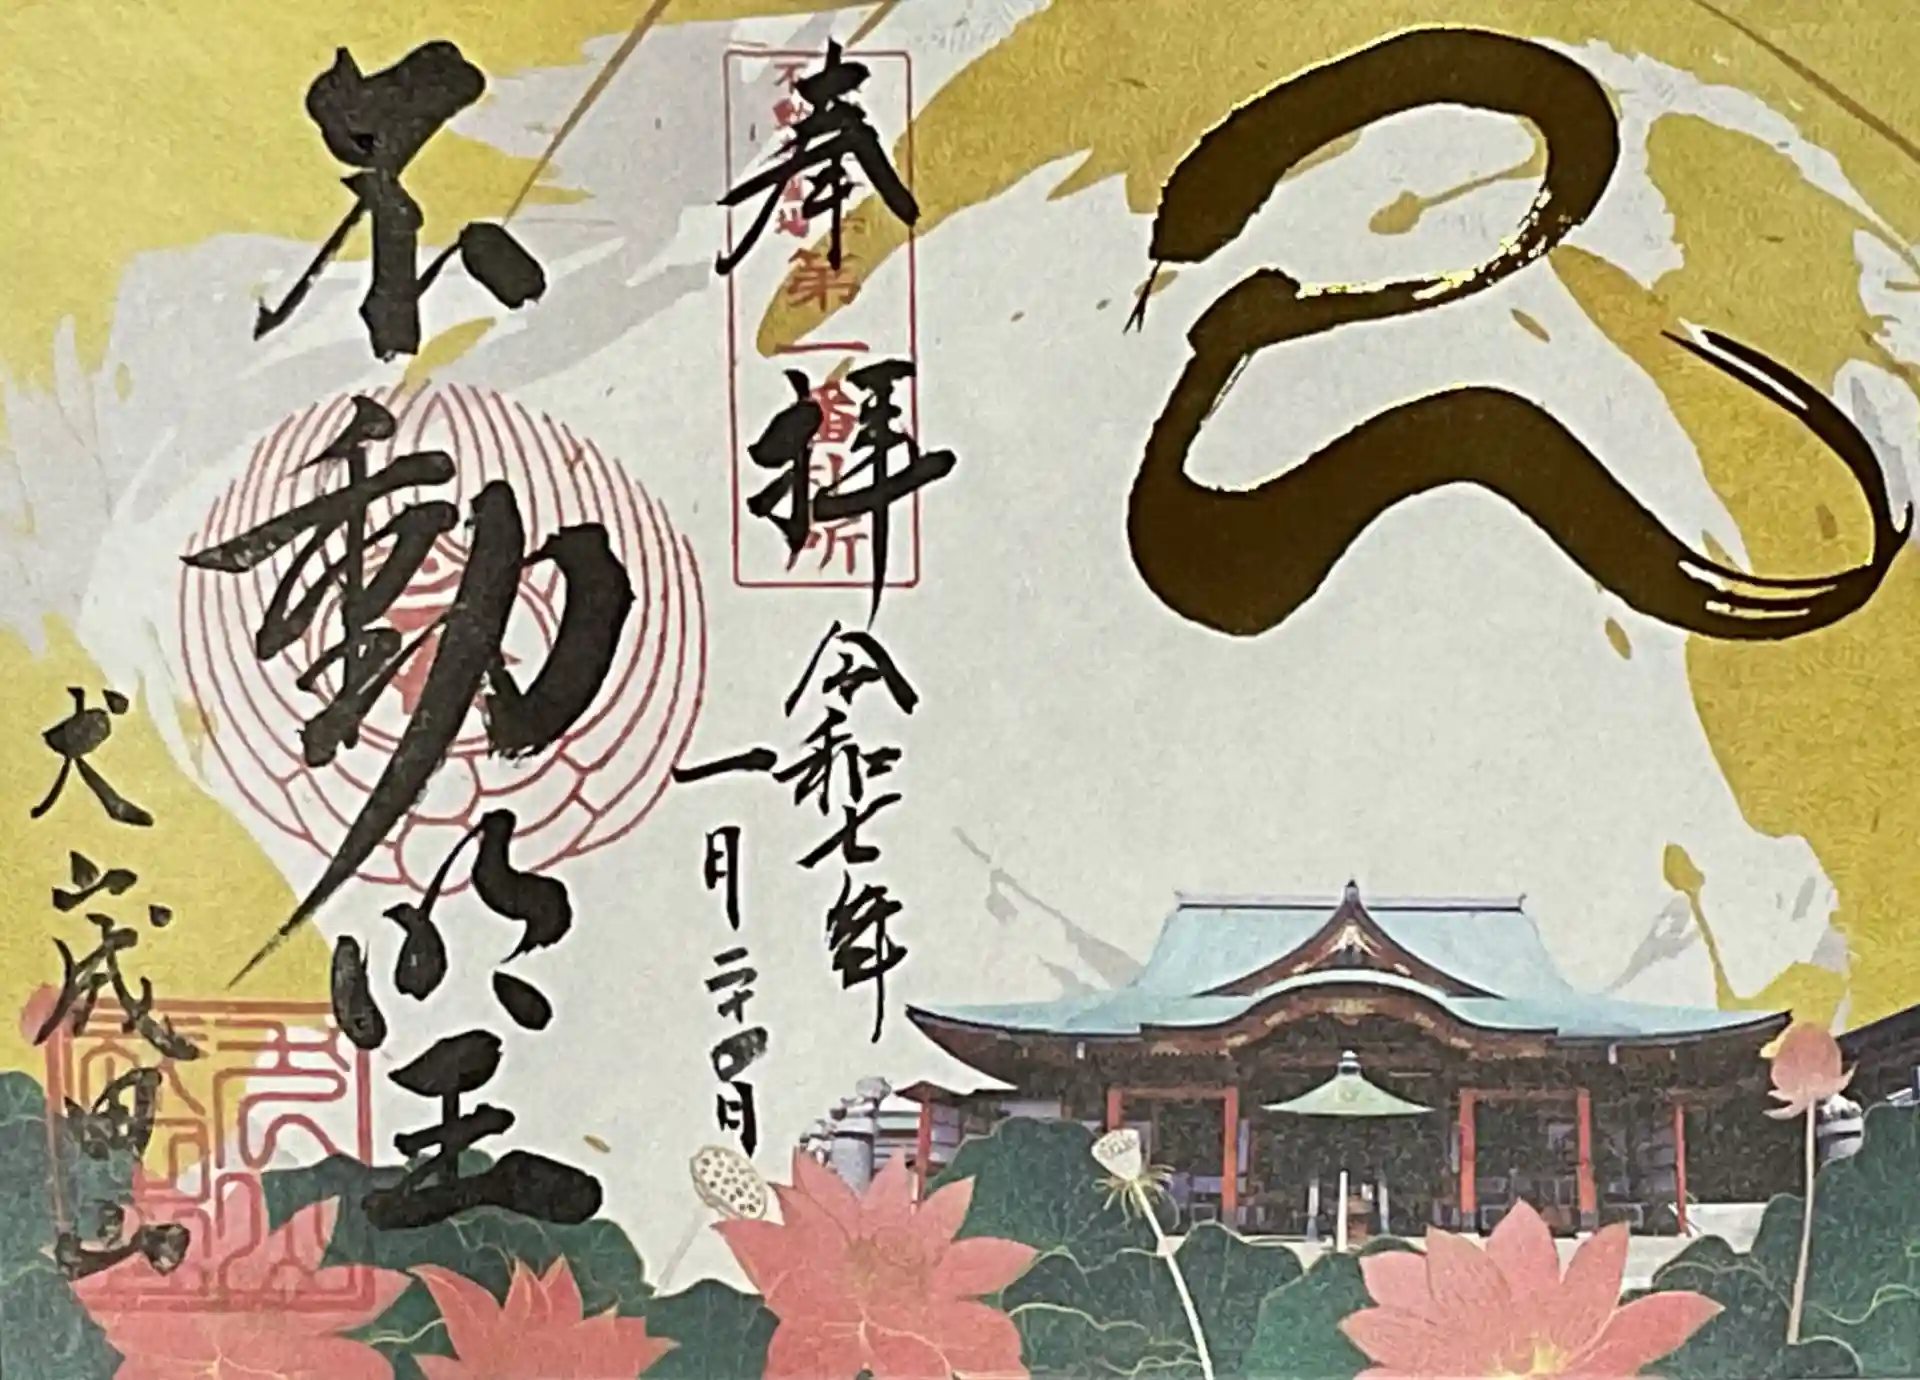 巳
奉拝
第一番札所
令和七年
一月二十四日
不動明王
犬山成田山